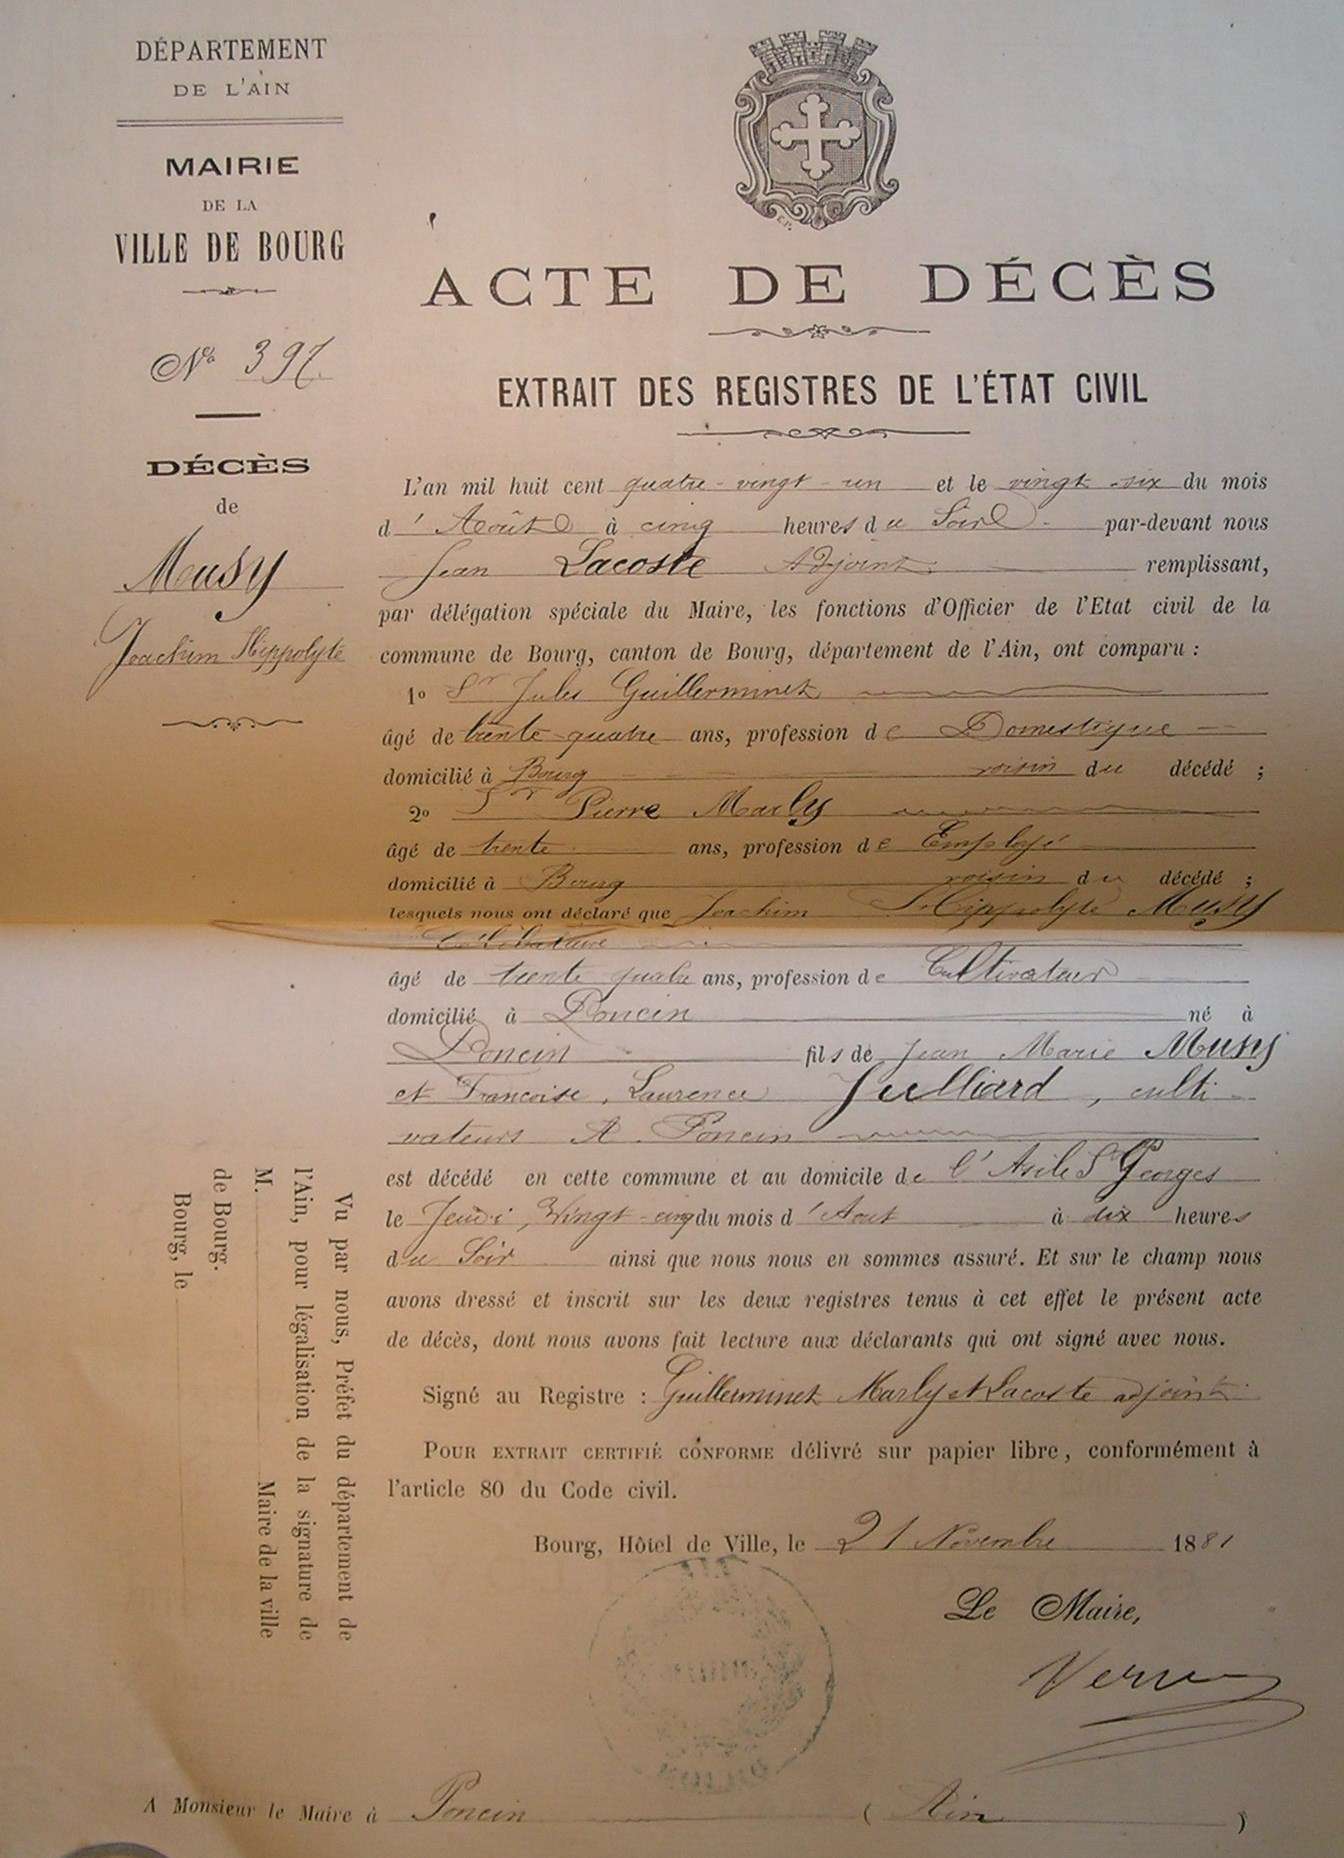 DÉPARTEMENT
DE L'AIN
MAIRIE
DE LA
VILLE DE BOURG
No 397.
DÉCÈS
de
Musy
Joachim Hippolyte
ACTE DE DÉCÈS
EXTRAIT DES REGISTRES DE L'ÉTAT CIVIL
L'an mil huit cent quatre-vingt-un et le vingt-six du mois
d'Août à cinq heures du Soir par-devant nous
Jean Lacoste Adjoint remplissant,
par délégation spéciale du Maire, les fonctions d'Officier de l'Etat civil de la
commune de Bourg, canton de Bourg, département de l'Ain, ont comparu :
1o Sr Jules Guillerminet
âgé de trente-quatre ans, profession de Domestique
domicilié à Bourg voisin du décédé ;
2o Sr Pierre Marly
âgé de trente ans, profession de Employé
domicilié à Bourg voisin du décédé ;
lesquels nous ont déclaré que Joachim Hippolyte Musy
Célibataire
âgé de trente quatre ans, profession de Cultivateur
domicilié à Poncin né à
Poncin fils de Jean Marie Musy
et Francoise, Laurence Julliard, culti-
vateurs A Poncin
est décédé en cette commune et au domicile de l'Asile St Georges
le Jeudi, Vingt-cinq du mois d'Aout à dix heures
du Soir ainsi que nous nous en sommes assuré. Et sur le champ nous
avons dressé et inscrit sur les deux registres tenus à cet effet le présent acte
de décès, dont nous avons fait lecture aux déclarants qui ont signé avec nous.
Signé au Registre : Guillerminet Marly et Lacoste adjoint.
POUR EXTRAIT CERTIFIÉ CONFORME délivré sur papier libre, conformément à
l'article 80 du Code civil.
Bourg, Hôtel de Ville, le 21 Novembre 1881
Le Maire,
Vu par nous, Préfet du département de
l'Ain, pour légalisation de la signature de
M. Maire de la ville
de Bourg.
Bourg, le
A Monsieur le Maire à Poncin (Ain)